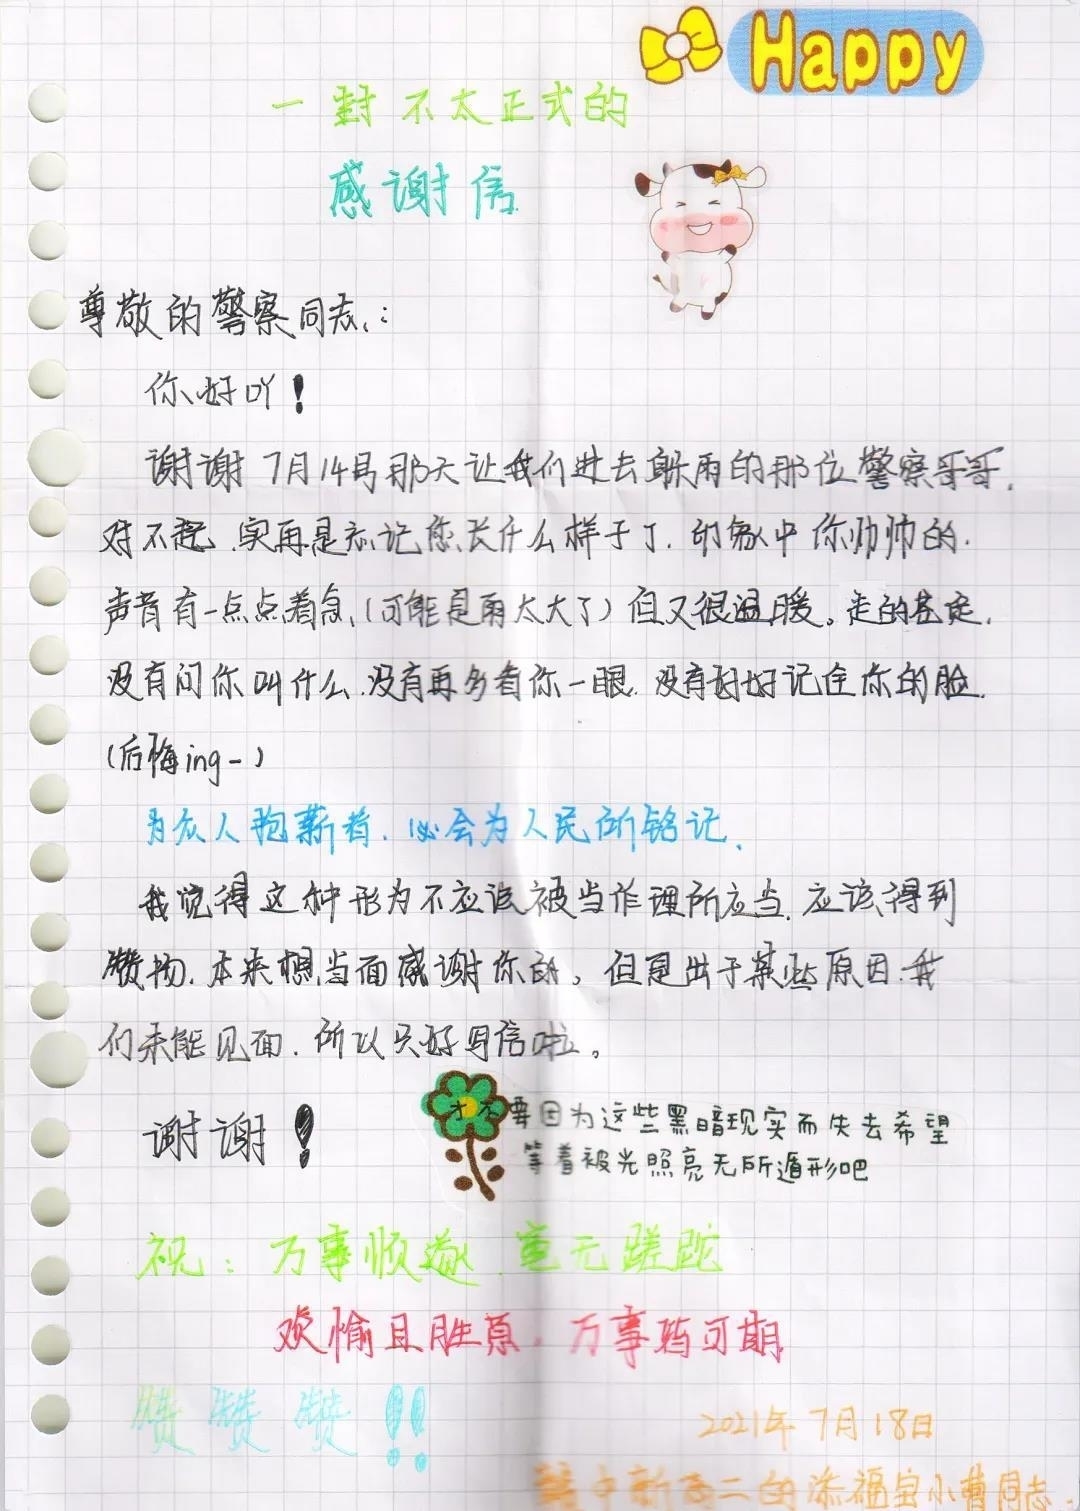 Happy
一封不太正式的
感谢信
尊敬的警察同志:
你好吖!
谢谢7月14号那天让我们进去躲雨的那位警察哥哥.
对不起.实再是忘记您长什么样子了.印象中你帅帅的.
声音有一点点着急(可能是雨太大了)但又很温暖。走的甚是.
没有问你叫什么.没有再多看你一眼.没有好好记住你的脸.
(后悔ing-)
为众人抱薪者.必会为人民所铭记.
我觉得这种形为不应该被当作理所应当.应该得到
赞扬.本来想当面感谢你的。但是出于某些原因.我
们未能见面.所以只好写信啦。
谢谢!
才不要因为这些黑暗现实而失去希望
等着被光照亮无所遁形吧
祝:万事顺遂.毫无蹉跎
欢愉且胜原.万事皆可期
赞赞赞!!
2021年7月18日
中新高二的添福宝小曹同志.